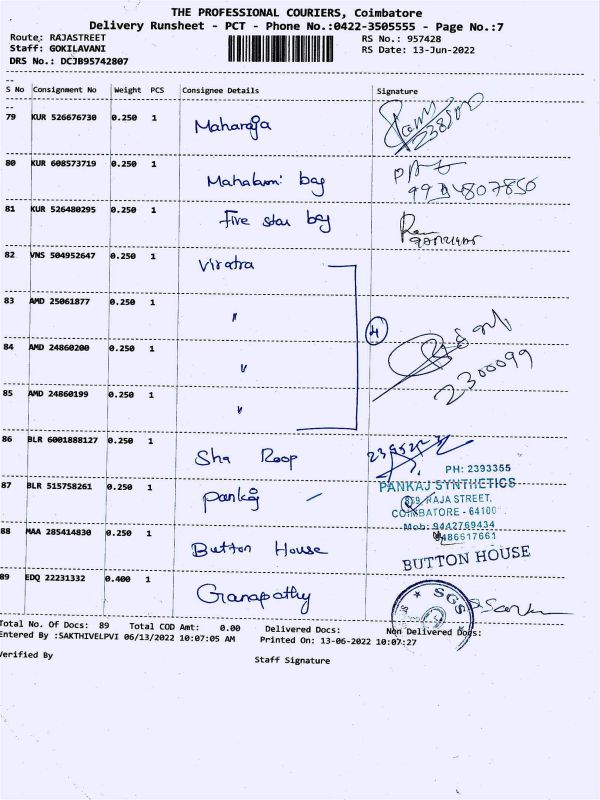 THE PROFESSIONAL COURIERS, Coimbatore
Delivery Runsheet - PCT - Phone No.:0422-3505555 - Page No.:7
Route: RAJASTREET RS No.: 957428
Staff: GOKILAVANI RS Date: 13-Jun-2022
DRS No.: DCJB95742807
S No Consignment No Weight PCS Consignee Details Signature
79 KUR 526676730 0.250 1 Maharaja
80 KUR 608573719 0.250 1 bag
9994807850
81 KUR 526480295 0.250 1 Five star bag
82 VNS 504952647 0.250 1 Viratra
83 AMD 25061877 0.250 1 "
4
84 AMD 24860200 0.250 1 "
2300099
85 AMD 24860199 0.250 1 "
86 BLR 6001888127 0.250 1 Sha Roop
PH: 2393355
87 BLR 515758261 0.250 1 Pankaj
PANKAJ SYNTHETICS
RAJA STREET,
COIMBATORE - 64100
Mob: 9442769434
88 MAA 285414830 0.250 1 Button House
BUTTON HOUSE
89 EDQ 22231332 0.400 1 Ganapathy
SGS
Total No. Of Docs: 89 Total COD Amt: 0.00 Delivered Docs: Non Delivered Docs:
Entered By :SAKTHIVELPVI 06/13/2022 10:07:05 AM Printed On: 13-06-2022 10:07:27
Verified By
Staff Signature